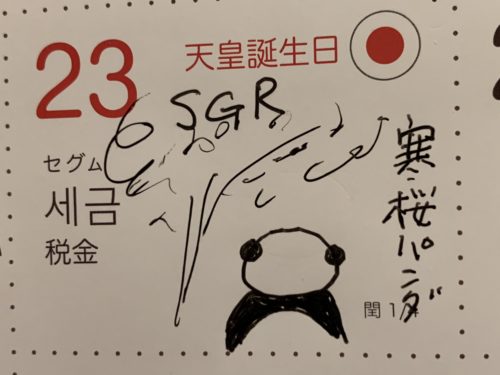 23
天皇誕生日
SGR
セグム
세금
税金
寒桜パンダ